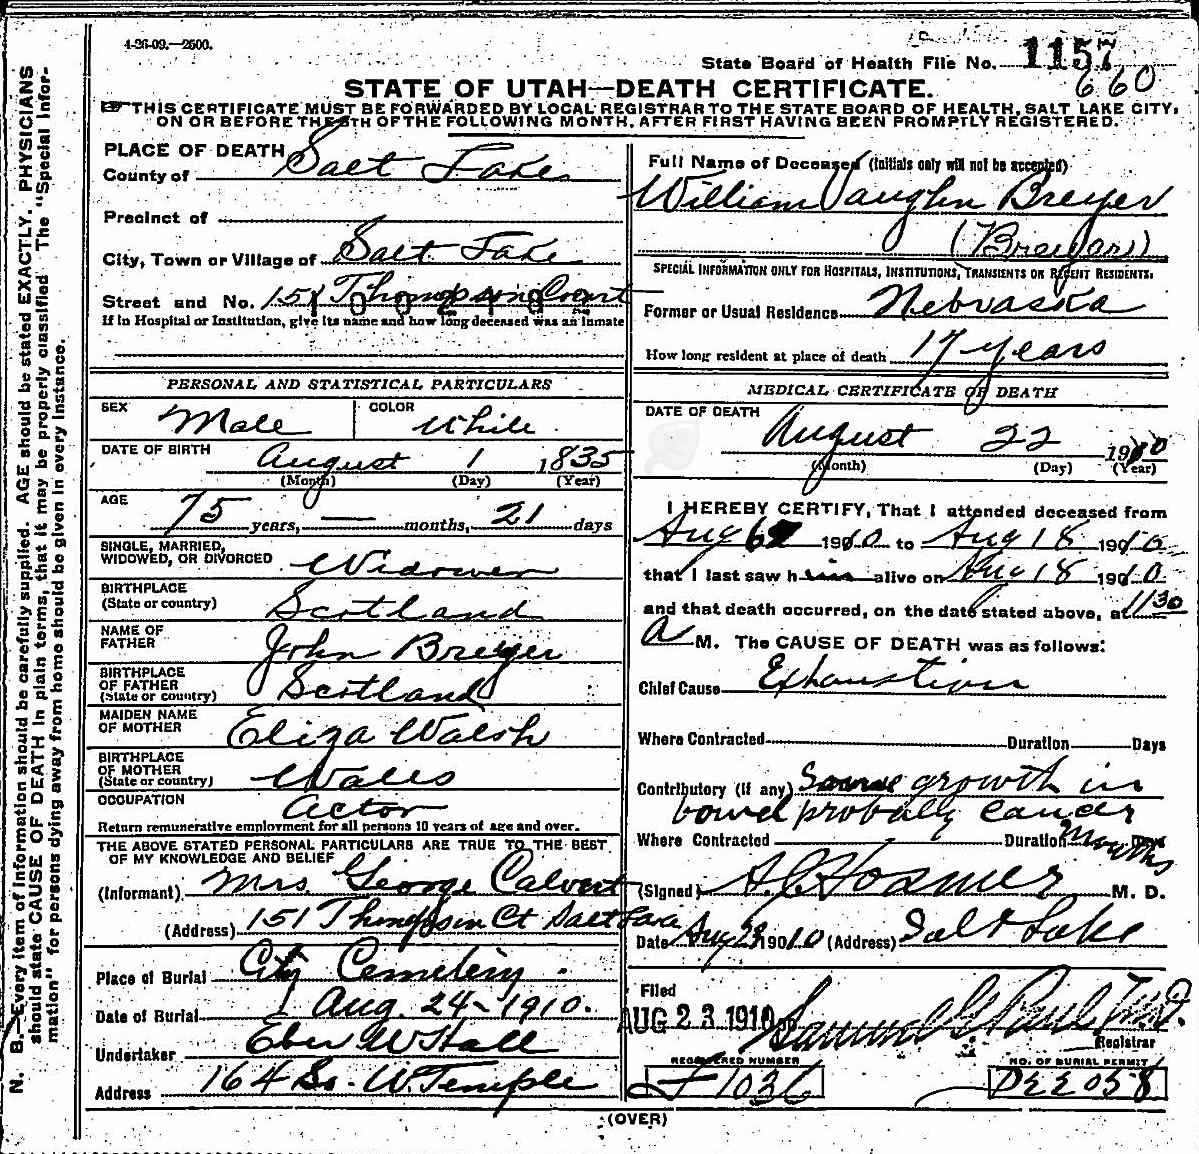 4-26-09.—2500.
State Board of Health File No. 1157
660
STATE OF UTAH—DEATH CERTIFICATE.
THIS CERTIFICATE MUST BE FORWARDED BY LOCAL REGISTRAR TO THE STATE BOARD OF HEALTH, SALT LAKE CITY,
ON OR BEFORE THE 5TH OF THE FOLLOWING MONTH, AFTER FIRST HAVING BEEN PROMPTLY REGISTERED.
N. B.—Every item of information should be carefully supplied. AGE should be stated EXACTLY. PHYSICIANS
should state CAUSE OF DEATH in plain terms, that it may be properly classified. The "Special Infor-
mation" for persons dying away from home should be given in every instance.
PLACE OF DEATH
County of Salt Lake
Precinct of
City, Town or Village of Salt Lake
Street and No. 151 Thompson Court
If in Hospital or Institution, give its name and how long deceased was an inmate
PERSONAL AND STATISTICAL PARTICULARS
SEX Male COLOR White
DATE OF BIRTH August 1 1835
(Month) (Day) (Year)
AGE 75 years, — months, 21 days
SINGLE, MARRIED,
WIDOWED, OR DIVORCED Widower
BIRTHPLACE
(State or country) Scotland
NAME OF
FATHER John Breyer
BIRTHPLACE
OF FATHER
(State or country) Scotland
MAIDEN NAME
OF MOTHER Eliza Walsh
BIRTHPLACE
OF MOTHER
(State or country) Wales
OCCUPATION Actor
Return remunerative employment for all persons 10 years of age and over.
THE ABOVE STATED PERSONAL PARTICULARS ARE TRUE TO THE BEST
OF MY KNOWLEDGE AND BELIEF
(Informant) Mrs. George Calvert
(Address) 151 Thompson Ct Salt Lake
Place of Burial City Cemetery.
Date of Burial Aug. 24-1910.
Undertaker Eber W Hall
Address 164 So. W. Temple
Full Name of Deceased (initials only will not be accepted)
William Vaughn Breyer
SPECIAL INFORMATION ONLY FOR HOSPITALS, INSTITUTIONS, TRANSIENTS OR RECENT RESIDENTS.
Former or Usual Residence Nebraska
How long resident at place of death 17 years
MEDICAL CERTIFICATE OF DEATH
DATE OF DEATH
August 22 1910
(Month) (Day) (Year)
I HEREBY CERTIFY, That I attended deceased from
Aug 1910 to Aug 18 1910
that I last saw him alive on Aug 18 1910
and that death occurred, on the date stated above, at 1130
A M. The CAUSE OF DEATH was as follows:
Chief Cause Exhaustion
Where Contracted Duration Days
Contributory (if any) Some growth in
bowel probably cancer
Where Contracted Duration Months
(Signed) M. D.
Date Aug 23 1910 (Address) Salt Lake
Filed
AUG 23 1910 Samuel G Paul M.D.
Registrar
REGISTERED NUMBER
1036
NO. OF BURIAL PERMIT
(OVER)